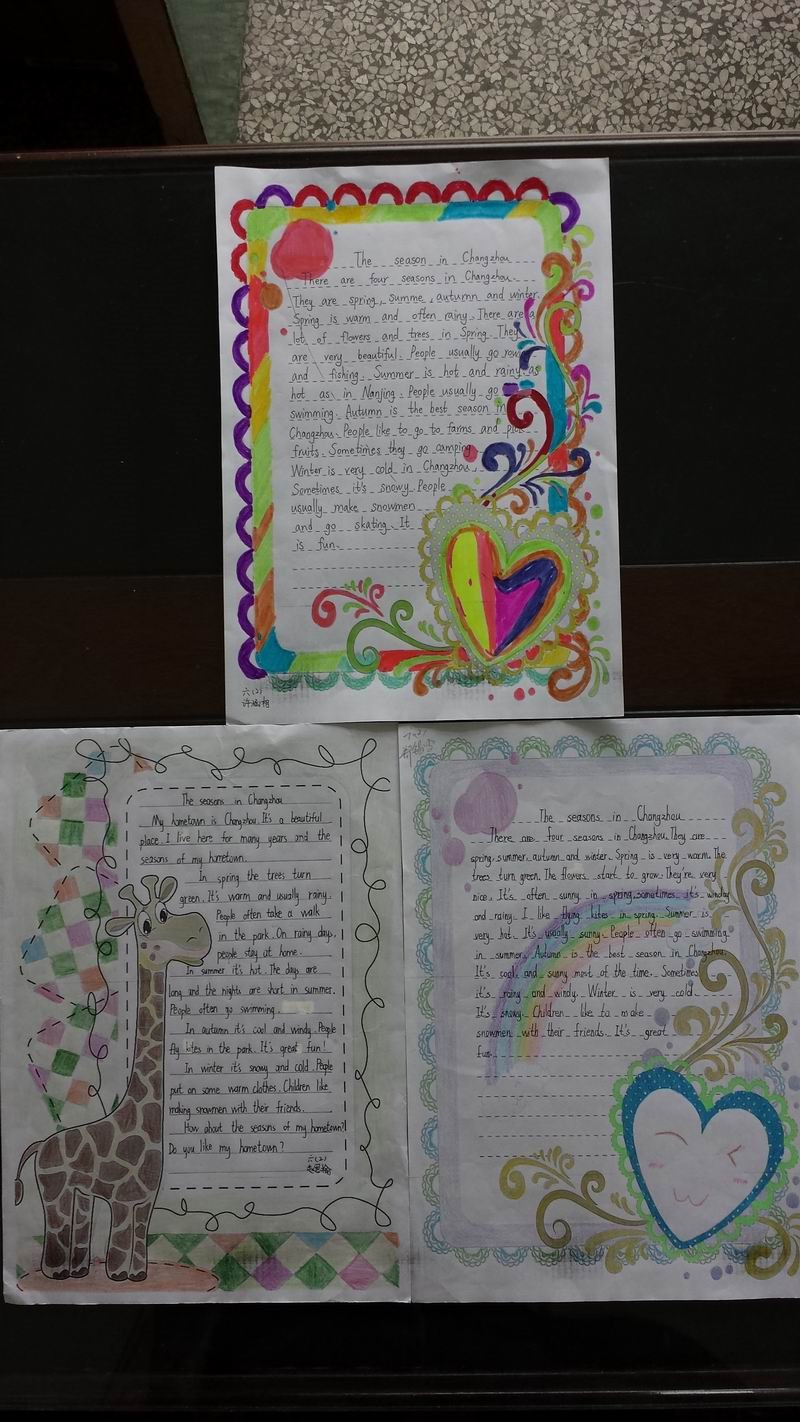 The season in Changzhou
There are four seasons in Changzhou.
They are spring, summe, autumn and winter.
Spring is warm and often rainy. There are a
lot of flowers and trees in Spring. They
are very beautiful. People usually go row
and fishing. Summer is hot and rainy as
hot as in Nanjing. People usually go
swimming. Autumn is the best season in
Changzhou. People like to go to farms and pick
fruits. Sometimes they go camping
Winter is very cold in Changzhou.
Sometimes it's snowy. People
usually make snowmen
and go skating. It
is fun.
六(2)
The seasons in Changzhou
My hometown is Changzhou. It's a beautiful
place. I live here for many years and the
seasons of my hometown.
In spring the trees turn
green. It's warm and usually rainy.
People often take a walk
in the park. On rainy days,
people stay at home.
In summer it's hot. The days are
long and the nights are short in summer.
People often go swimming.
In autumn it's cool and windy. People
fly kites in the park. It's great fun!
In winter it's snowy and cold. People
put on some warm clothes. Children like
making snowmen with their friends.
How about the seasons of my hometown?
Do you like my hometown?
六(2)
The seasons in Changzhou
There are four seasons in Changzhou. They are
spring, summer, autumn and winter. Spring is very warm. The
trees turn green. The flowers start to grow. They're very
nice. It's often sunny in spring, sometimes it's windy
and rainy. I like flying kites in spring. Summer is
very hot. It's usually sunny. People often go swimming
in summer. Autumn is the best season in Changzhou.
It's cool and sunny most of the time. Sometimes
it's rainy and windy. Winter is very cold.
It's snowy. Children like to make
snowmen with their friends. It's great
fun.